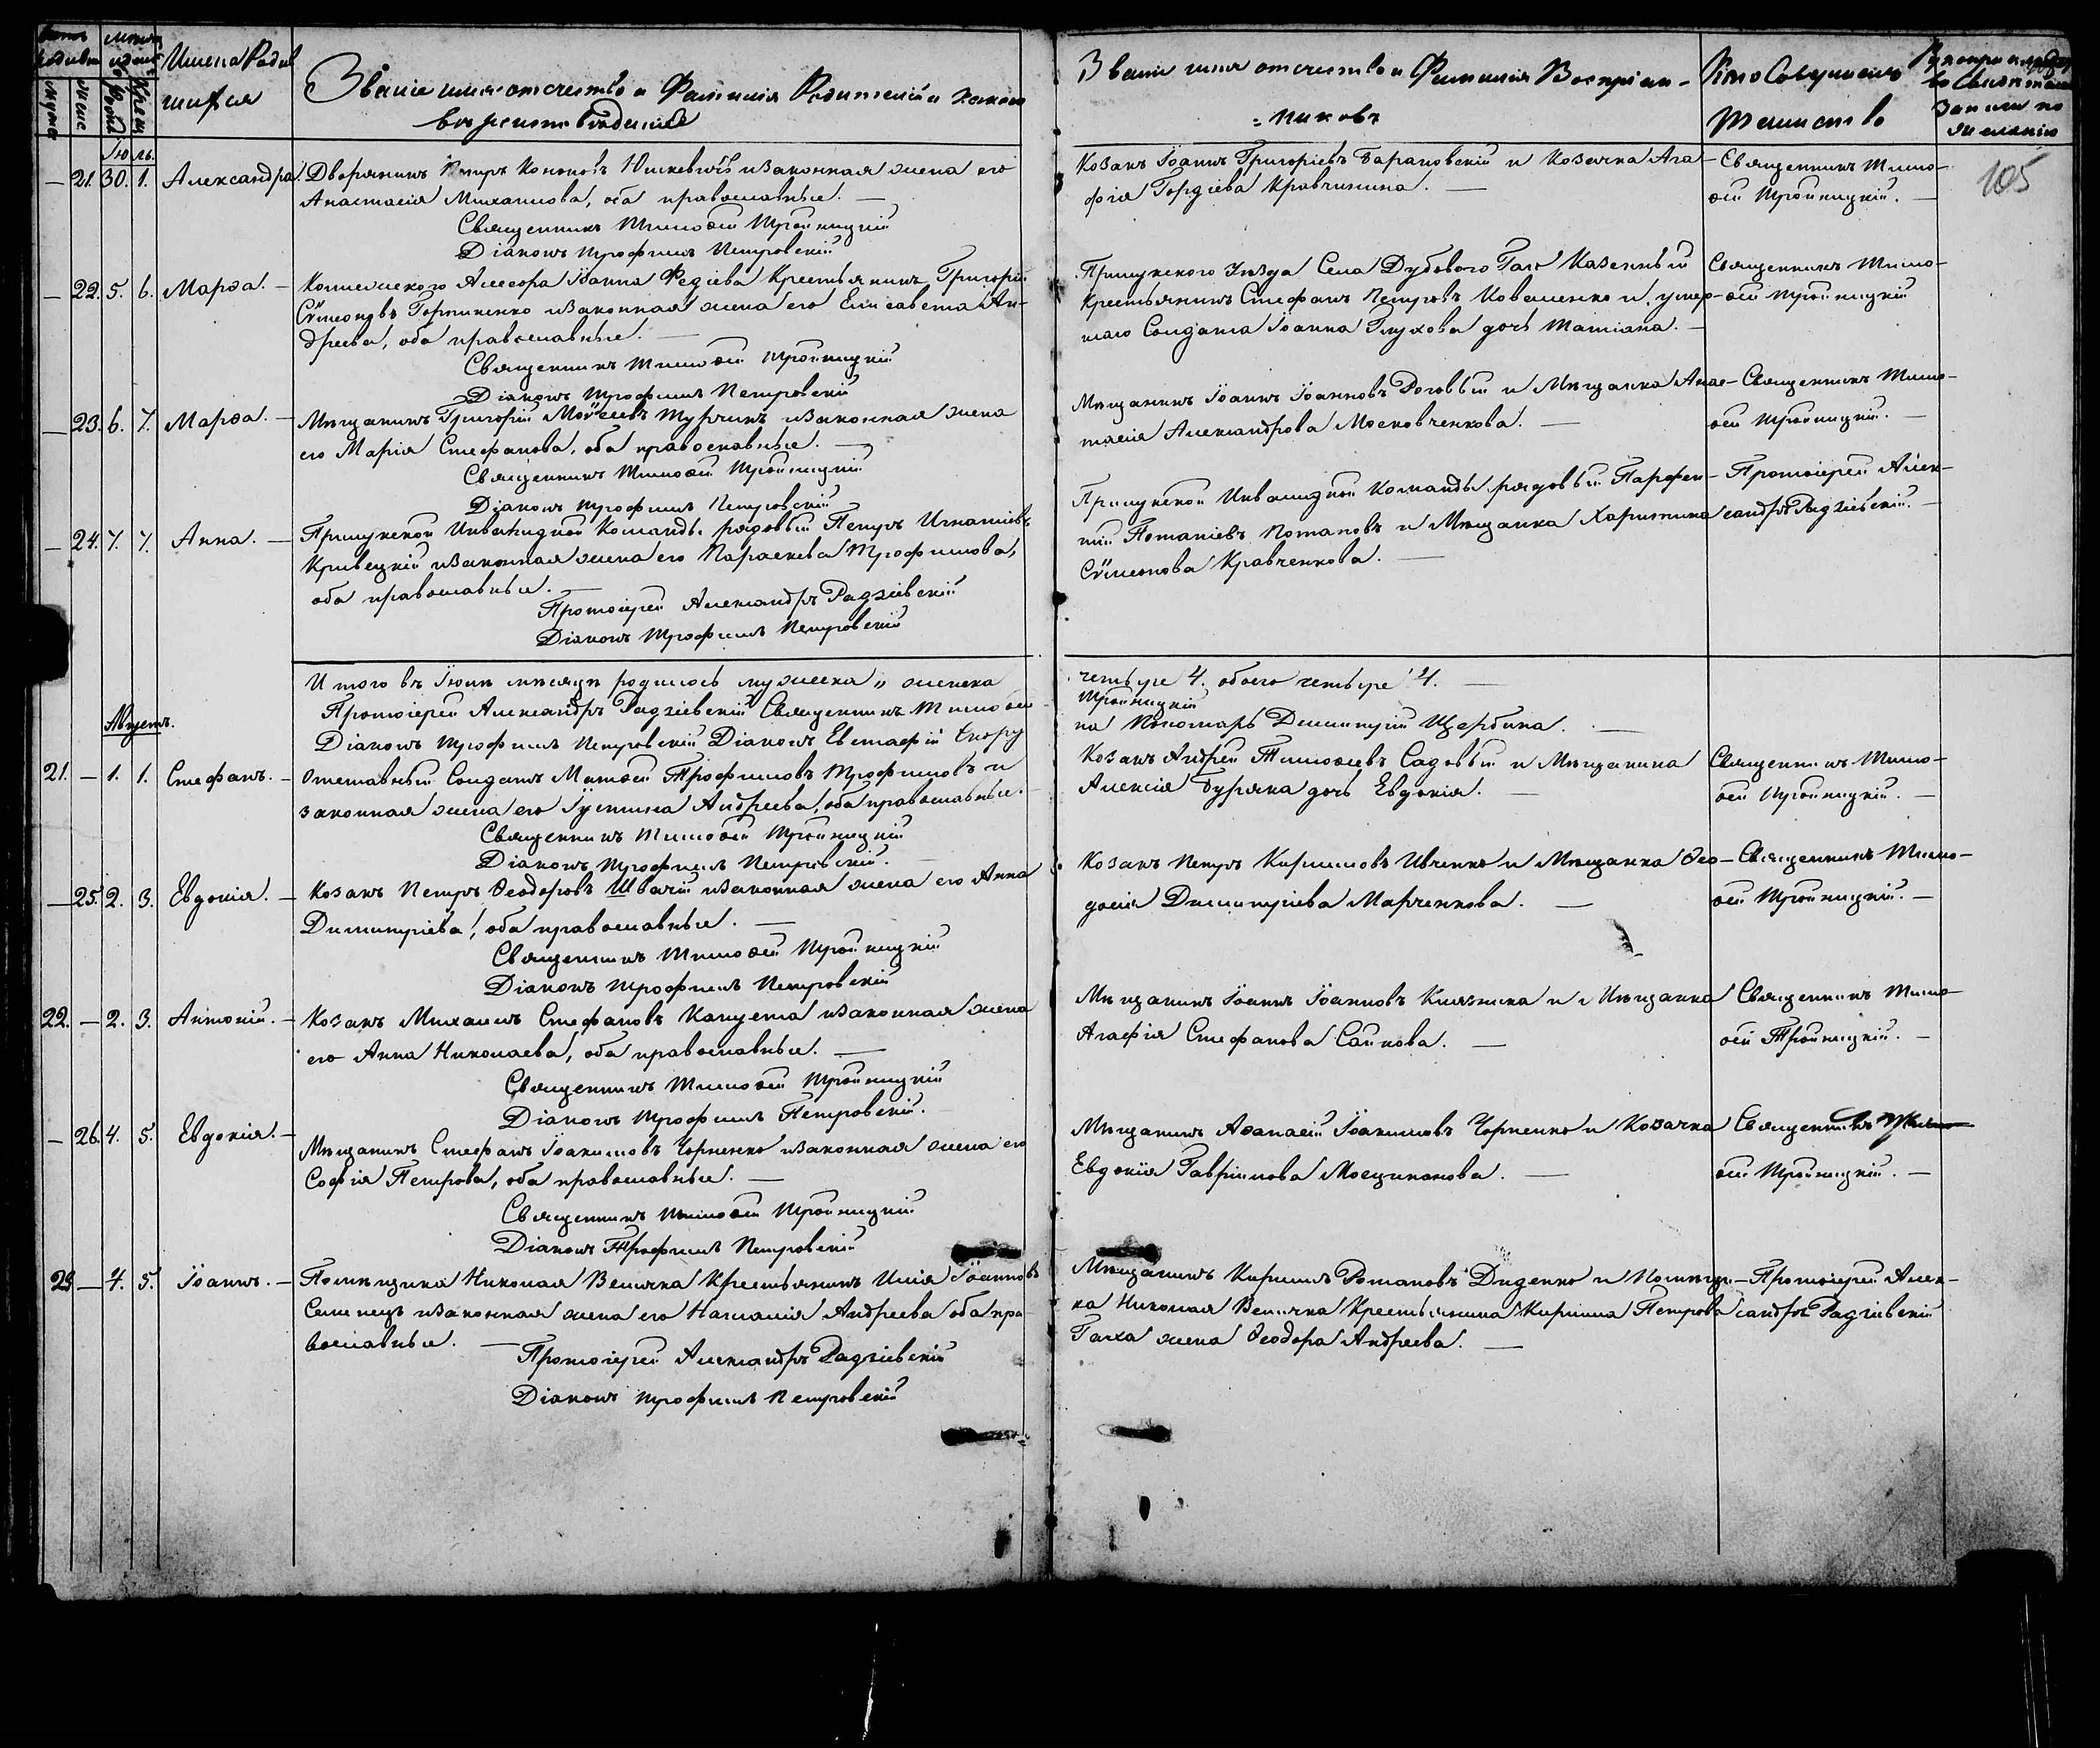 Имена Родив
шихся
Званіе имя отчество и Фамилія Родителей и какого
вѣроисповѣданія
Званіе имя отчество и Фамилія Воспріем-
никовъ
Кто Совершалъ
Таинство
Іюль.
105
— 21. 30. 1. Александра. Дворянинъ Петръ Юшкевичъ и законная жена его
Анастасія Михаилова, оба православные. —
Священникъ Тимоѳей Тройницкій
Діаконъ Трофимъ Петровскій
Козакъ Іоаннъ Григоріевъ Барановскій и Козачка Ага-
фія Гордіева Кравчинина. —
Священникъ Тимо-
ѳей Тройницкій. —
— 22. 5. 6. Марѳа. — Коллежскаго Ассесора Іоанна Крестьянинъ Григорій
Сѵмеоновъ Гортиненко и законная жена его Елисавета Ан-
дреева, оба православные. —
Священникъ Тимоѳей Тройницкій
Діаконъ Трофимъ Петровскій
Прилукского Уѣзда Села Дубового Гаю Казенный
Крестьянинъ Стефанъ Петровъ Коваленко и умер-
шаго Солдата Іоанна Глухова дочь Татіана. —
Священникъ Тимо-
ѳей Тройницкій
— 23. 6. 7. Марѳа. — Мѣщанинъ Григорій Моѵсеевъ Турчинъ и законная жена
его Марія Стефанова, оба православные. —
Священникъ Тимоѳей Тройницкій
Діаконъ Трофимъ Петровскій
Мѣщанинъ Іоаннъ Іоанновъ Роговый и Мѣщанка Анас-
тасія Александрова Московченкова. —
Священникъ Тимо-
ѳей Тройницкій. —
— 24. 7. 7. Анна. — Прилукской Инвалидной Команды рядовый Петръ Игнатіевъ
Кривецкій и законная жена его Параскева Трофимова,
оба православные. —
Протоіерей Александръ Радзіевскій
Діаконъ Трофимъ Петровскій
Прилукской Инвалидной Команды рядовый Парфен-
тій Потаповъ и Мѣщанка Харитина
Сѵмеонова Кравченкова. —
Протоіерей Алек-
сандръ Радзіевскій. —
Итого въ Іюлѣ мѣсяцѣ родилось мужеска „ женска
четыре 4. обоего четыре 4. —
Протоіерей Александръ Радзіевскій Священникъ Тимоѳей
Тройницкій
Діаконъ Трофимъ Петровскій Діаконъ Евстафій Скору
па Пономарь Димитрій Щербина. —
Августъ.
21. — 1. 1. Стефанъ. — Отставный Солдатъ Матѳей Трофимовъ Трофимовъ и
законная жена его Іустина Андреева, оба православные. —
Священникъ Тимоѳей Тройницкій
Діаконъ Трофимъ Петровскій. —
Козакъ Андрей Тимоѳеевъ Садовый и Мѣщанина
Алексія Буряка дочь Евдокія. —
Священникъ Тимо-
ѳей Тройницкій. —
— 25. 2. 3. Евдокія. — Козакъ Петръ Ѳеодоровъ Швачій и законная жена его Анна
Димитріева, оба православные. —
Священникъ Тимоѳей Тройницкій
Діаконъ Трофимъ Петровскій
Козакъ Петръ Кириловъ Ивченко и Мѣщанка Ѳео-
досія Димитріева Марченкова. —
Священникъ Тимо-
ѳей Тройницкій. —
22. — 2. 3. Антоній. — Козакъ Михаилъ Стефановъ Капуста и законная жена
его Анна Николаева, оба православные. —
Священникъ Тимоѳей Тройницкій
Діаконъ Трофимъ Петровскій.
Мѣщанинъ Іоаннъ Іоанновъ и Мѣщанка
Агафія Стефанова Сайкова. —
Священникъ Тимо-
ѳей Тройницкій. —
— 26. 4. 5. Евдокія. — Мѣщанинъ Стефанъ Іоакимовъ Чорненко и законная жена его
Софія Петрова, оба православные. —
Священникъ Тимоѳей Тройницкій
Діаконъ Трофимъ Петровскій
Мѣщанинъ Аѳанасій Іоакимовъ Чорненко и Козачка
Евдокія Гавріилова. —
Священникъ Тимо
ѳей Тройницкій. —
23 — 4. 5. Іоаннъ. — Помѣщика Николая Велички Крестьянинъ Илія Іоанновъ
и законная жена его Наталія Андреева оба пра
вославные. —
Протоіерей Александръ Радзіевскій
Діаконъ Трофимъ Петровскій
Мѣщанинъ Кирилъ Романовъ Диденко и Помѣщи-
ка Николая Велички Крестьянина Кирила Петрова
Галха жена Ѳеодора Андреева. —
Протоіерей Алек-
сандръ Радзіевскій